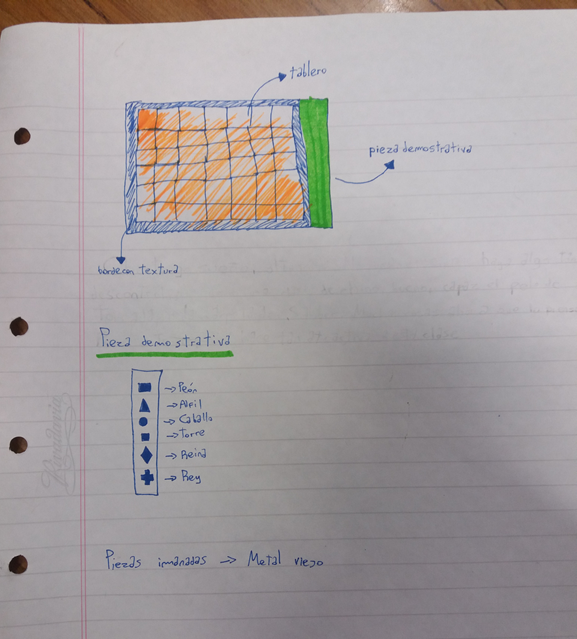 tablero
pieza demostrativa
borde con textura
Pieza demostrativa
→ Peón
→ Alfil
→ Caballo
→ Torre
→ Reina
→ Rey
Piezas imanadas → Metal viejo